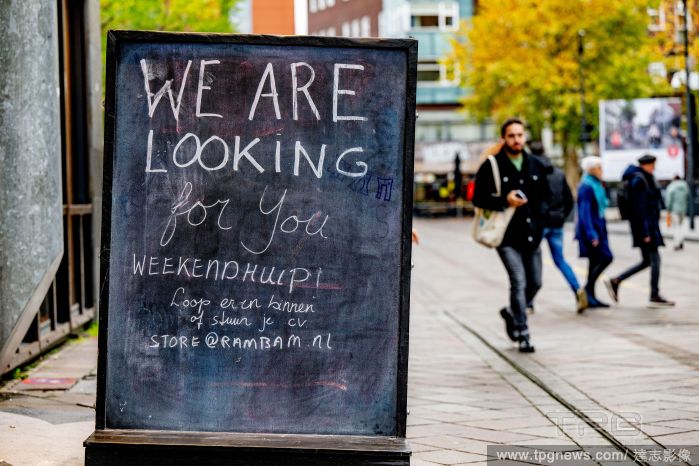 WE ARE
LOOKING
for You
WEEKENDHULP!
Loop er in binnen
of stuur je cv
STORE@RAMBAM.nl
TPG
www.tpgnews.com/達志影像